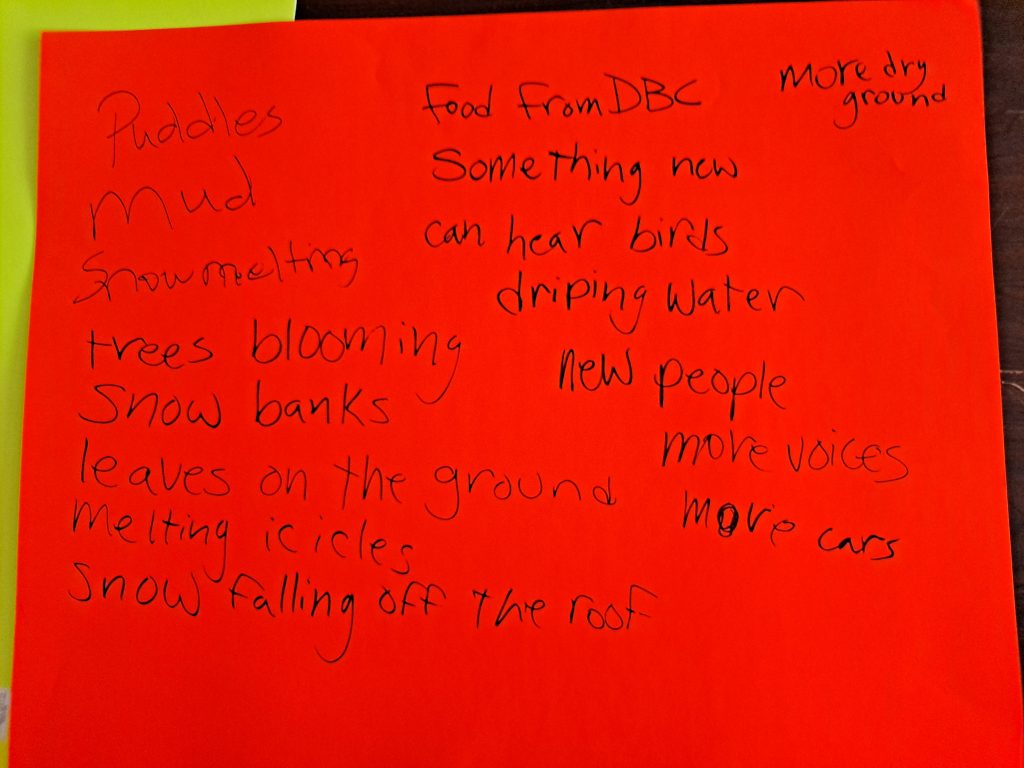 Puddles
mud
Snow melting
trees blooming
Snow banks
leaves on the ground
melting icicles
snow falling off the roof
Food from DBC
Something new
can hear birds
driping water
new people
more voices
more cars
more dry
ground